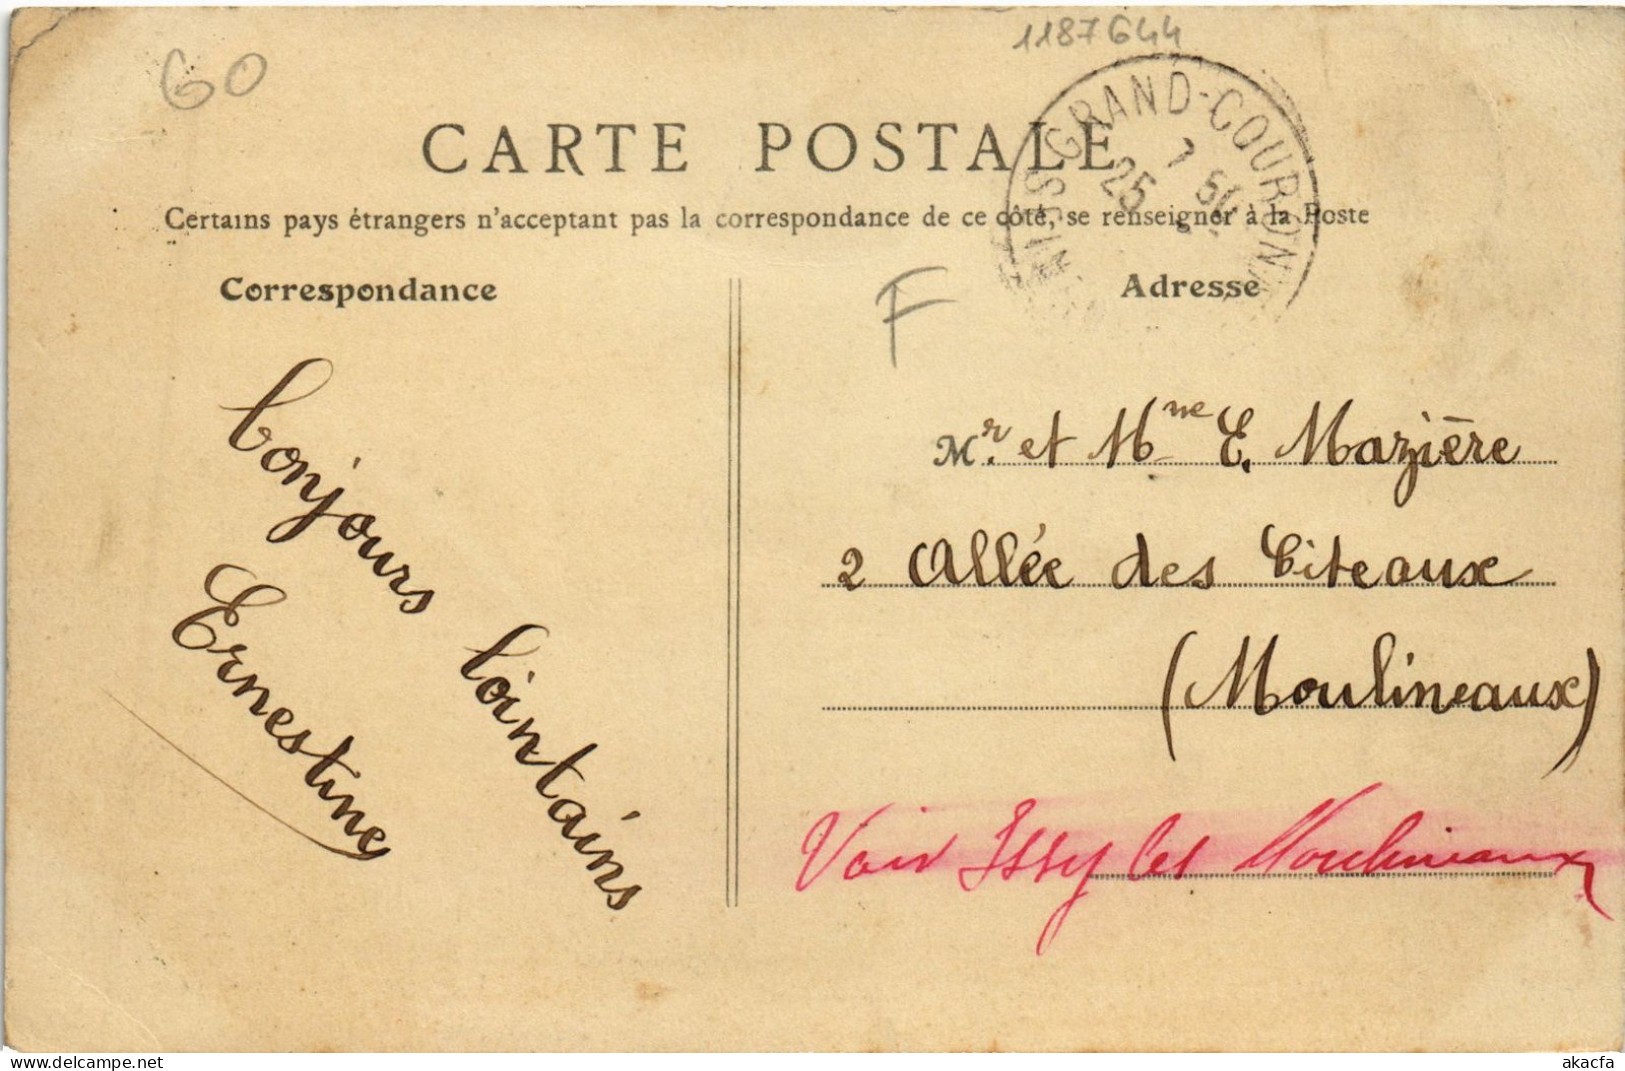 60
1187644
CARTE POSTALE
GRAND-COURONN
25
Certains pays étrangers n'acceptant pas la correspondance de ce côté, se renseigner à la Poste
Correspondance
Adresse
F
bonjours lointains
Ernestine
Mr. et Mme E. Mazière
2 Allée des Citeaux
(Moulineaux)
Voir Issy les Moulineaux
delcampe.net
akacfa